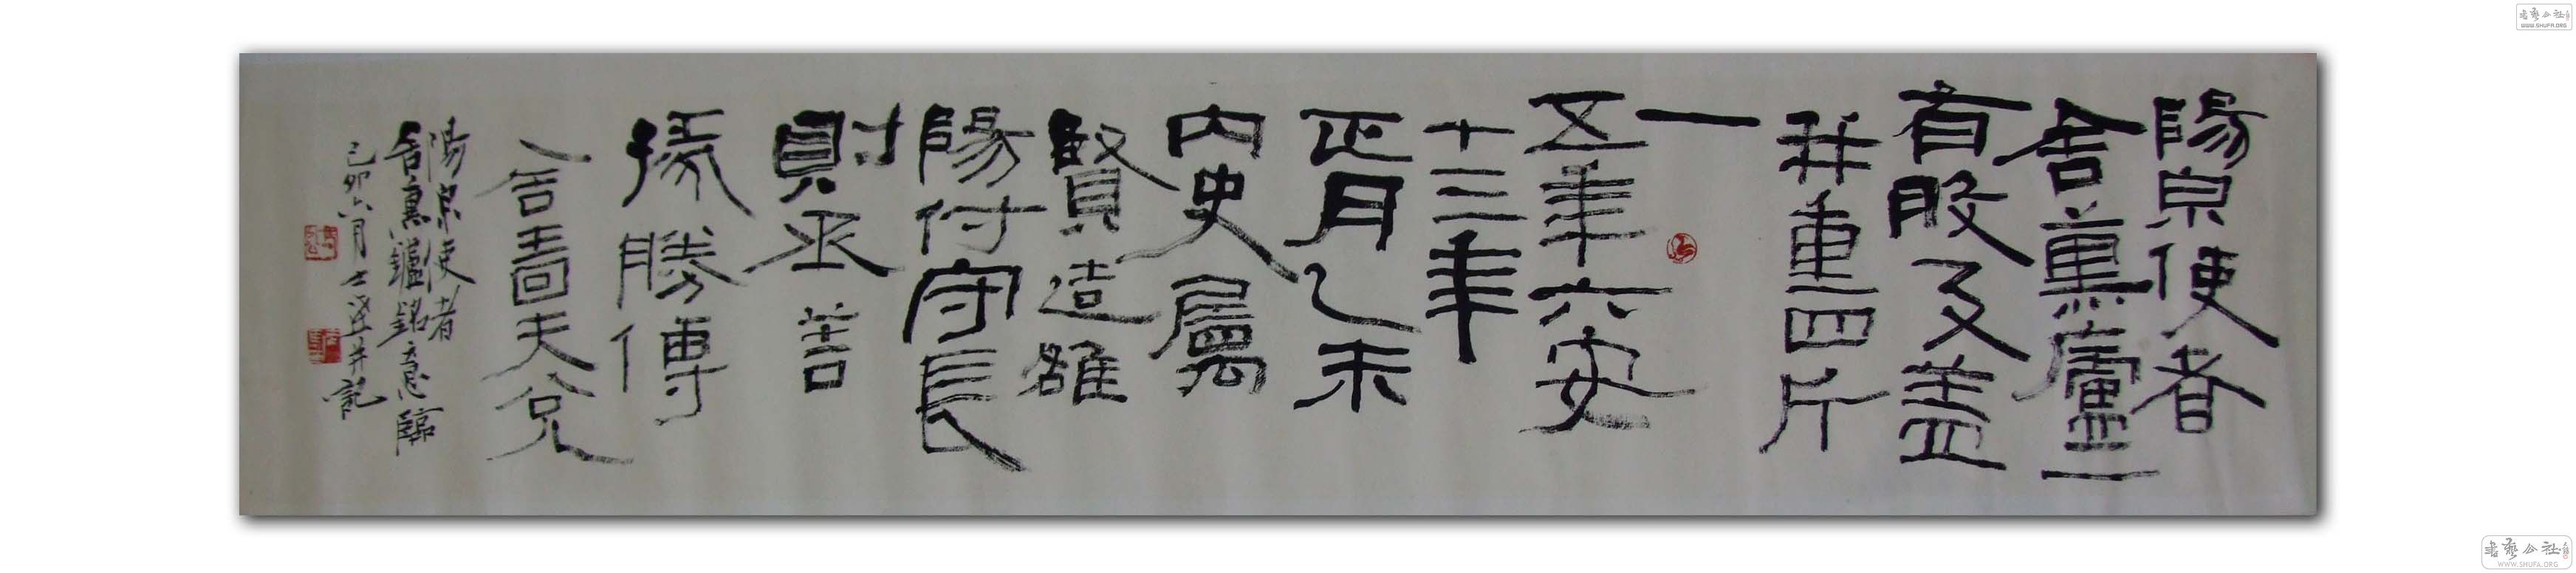 陽泉使者
舍薰廬一
有般及蓋
并重四斤
一
五年六安
十三年
正月乙未
內史屬
賢造雒
陽付守長
則丞善
掾勝傳
舍嗇夫兌
陽泉使者
舍熏鑪銘意臨
己卯六月士并記
書藝公社
WWW.SHUFA.ORG
書藝公社
WWW.SHUFA.ORG